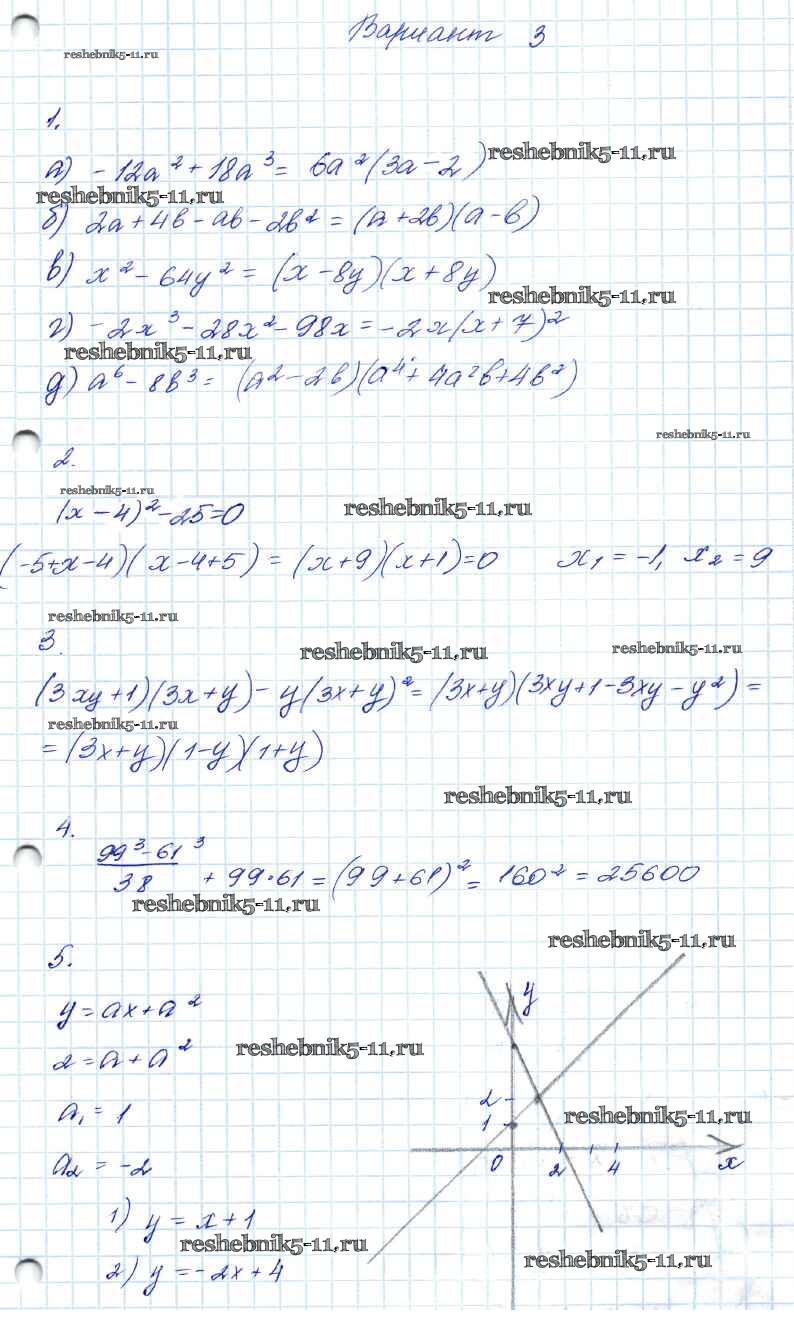 Вариант 3
reshebnik5-11.ru
1.
а) -12a² + 18a³ = 6a²(3a - 2)
reshebnik5-11.ru
reshebnik5-11.ru
б) 2a + 4b - ab - 2b² = (a + 2b)(a - b)
в) x² - 64y² = (x - 8y)(x + 8y)
reshebnik5-11.ru
г) -2x³ - 28x² - 98x = -2x(x + 7)²
reshebnik5-11.ru
д) a⁶ - 8b³ = (a² - 2b)(a⁴ + 4a²b + 4b²)
reshebnik5-11.ru
2.
reshebnik5-11.ru
(x - 4)² - 25 = 0
reshebnik5-11.ru
(-5+x-4)(x-4+5) = (x+9)(x+1)=0 x₁ = -1, x₂ = 9
reshebnik5-11.ru
3.
reshebnik5-11.ru
reshebnik5-11.ru
(3xy+1)(3x+y) - y(3x+y)² = (3x+y)(3xy+1-3xy-y²) =
reshebnik5-11.ru
= (3x+y)(1-y)(1+y)
reshebnik5-11.ru
4.
99³-61³/38 + 99·61 = (99+61)² = 160² = 25600
reshebnik5-11.ru
reshebnik5-11.ru
5.
y = ax + a²
2 = a + a²
reshebnik5-11.ru
a₁ = 1
a₂ = -2
1) y = x + 1
reshebnik5-11.ru
2) y = -2x + 4
y
2
1
reshebnik5-11.ru
0 2 4 x
reshebnik5-11.ru